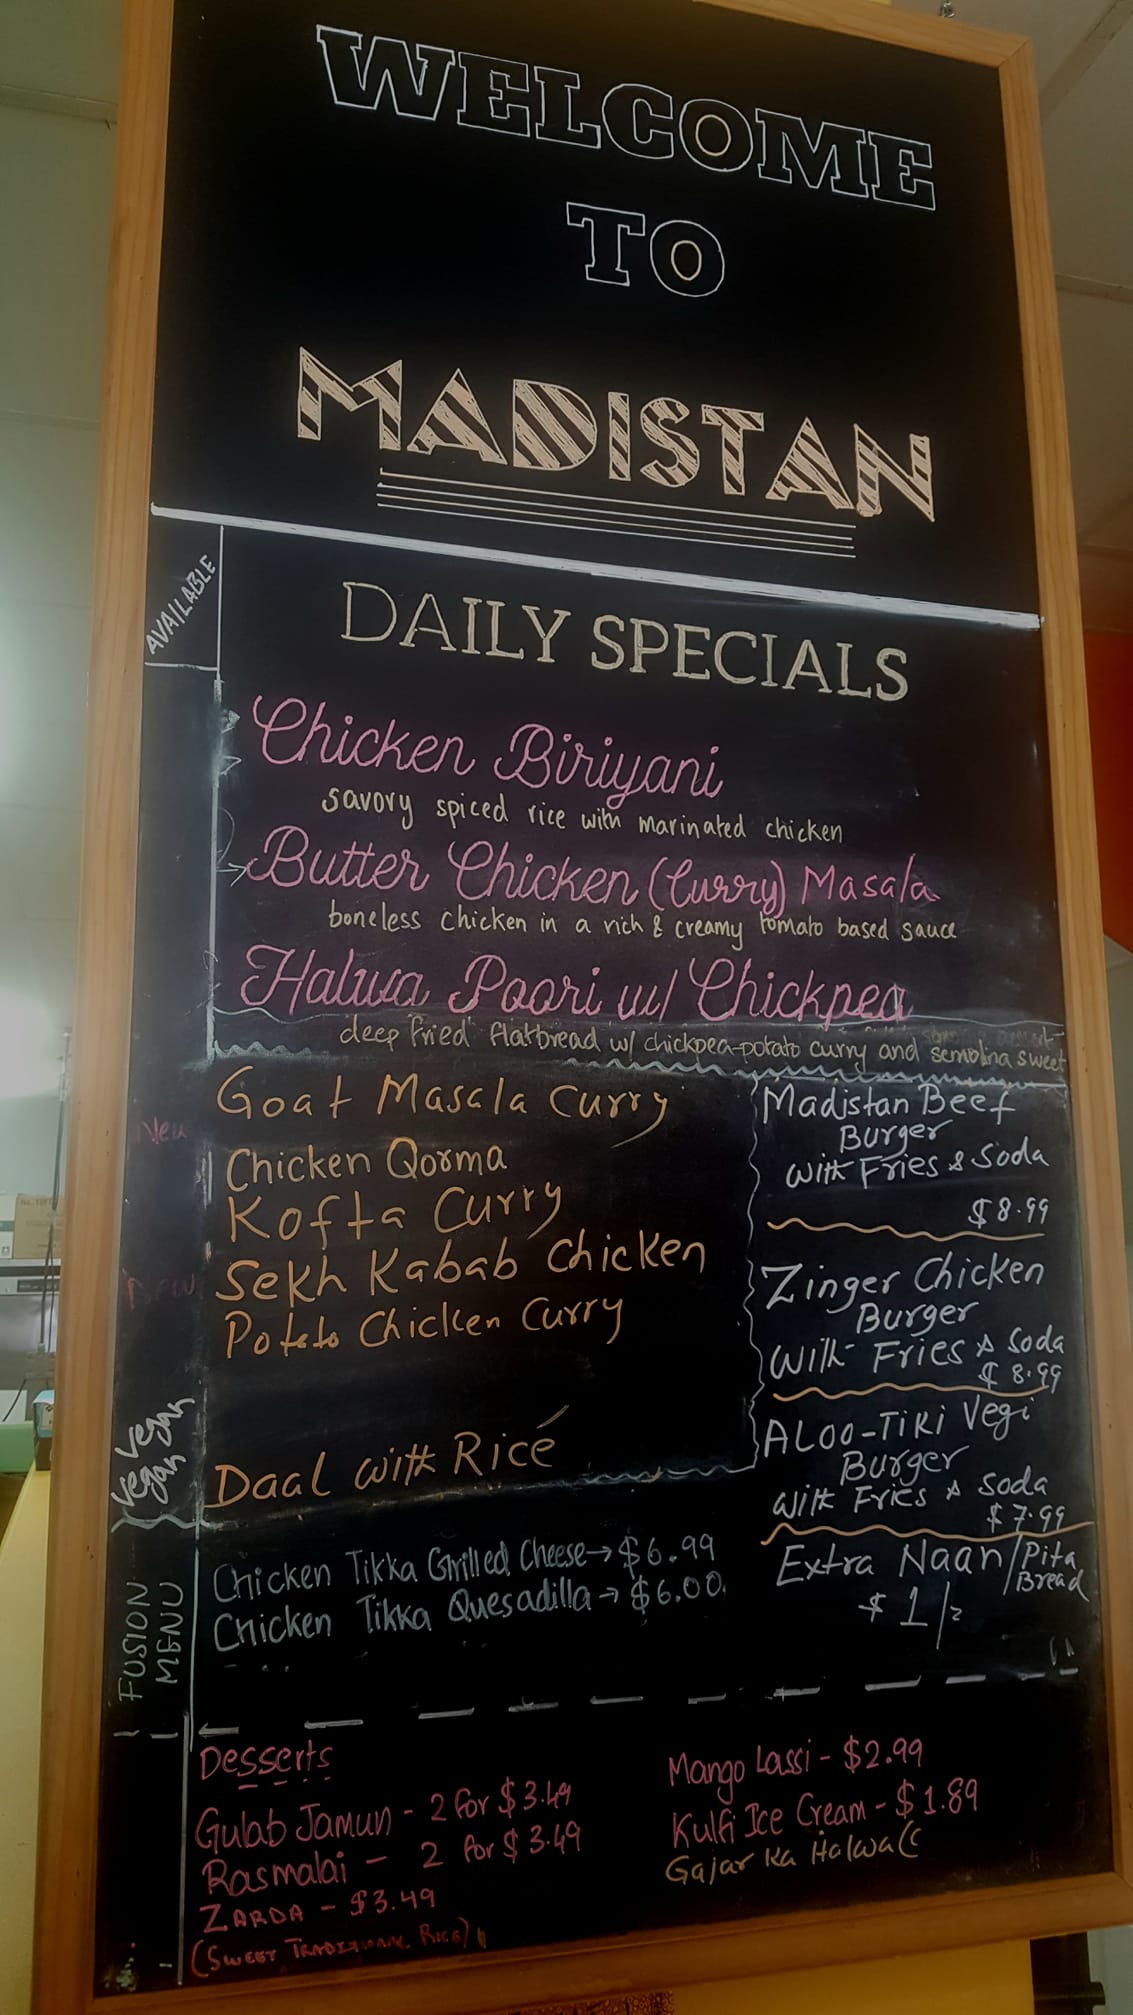 WELCOME
TO
MADISTAN
AVAILABLE
DAILY SPECIALS
Chicken Biriyani
savory spiced rice with marinated chicken
Butter Chicken (Curry) Masala
boneless chicken in a rich & creamy tomato based sauce
Halwa Poori w/ Chickpea
deep fried flatbread w/ chickpea-potato curry and semolina sweet
Goat Masala Curry
New
Chicken Qorma
Kofta Curry
New
Sekh Kabab Chicken
Poteto Chicken Curry
Vegan
Vegan
Daal with Rice
Madistan Beef
Burger
with Fries & Soda
$8.99
Zinger Chicken
Burger
with Fries & Soda
$8.99
ALOO-TIKI Vegi
Burger
with Fries & Soda
$7.99
Extra Naan/Pita
Bread
$1/=
FUSION
MENU
Chicken Tikka Grilled Cheese→$6.99
Chicken Tikka Quesadilla→$6.00
Desserts
Gulab Jamun - 2 for $3.49
Rasmalai - 2 for $3.49
ZARDA - $3.49
(SWEET TRADITIONAL RICE)
Mango Lassi - $2.99
Kulfi Ice Cream - $1.89
Gajar ka Halwa (